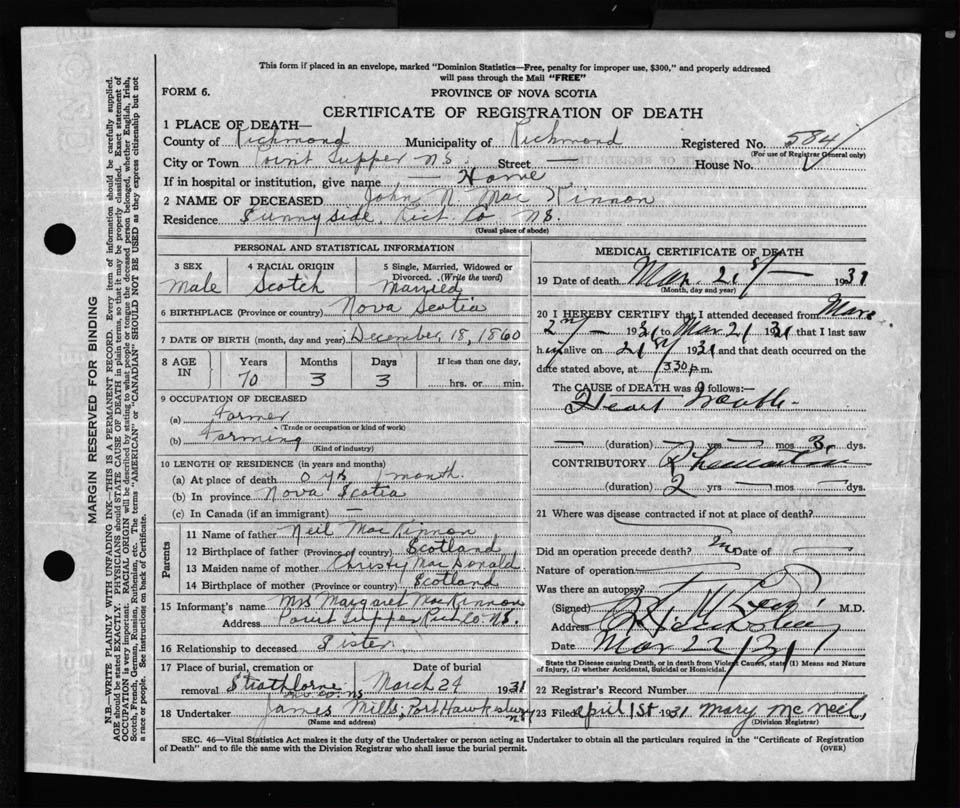 This form if placed in an envelope, marked "Dominion Statistics—Free, penalty for improper use, $300," and properly addressed
will pass through the Mail "FREE"
FORM 6.
PROVINCE OF NOVA SCOTIA
CERTIFICATE OF REGISTRATION OF DEATH
1 PLACE OF DEATH—
County of Richmond Municipality of Richmond Registered No. 584
(For use of Registrar General only)
City or Town Point Tupper N.S. Street — House No.
If in hospital or institution, give name — Home
2 NAME OF DECEASED John N. MacKinnon
Residence Sunnyside, Rich. Co. N.S.
(Usual place of abode)
PERSONAL AND STATISTICAL INFORMATION
3 SEX
Male
4 RACIAL ORIGIN
Scotch
5 Single, Married, Widowed or
Divorced. (Write the word)
Married
6 BIRTHPLACE Nova Scotia
7 DATE OF BIRTH (month, day and year) December, 18, 1860
8 AGE IN
Years Months Days If less than one day,
70 3 3 hrs. or min.
9 OCCUPATION OF DECEASED
(a) Farmer
(Trade or occupation or kind of work)
(b) Farming
(Kind of industry)
10 LENGTH OF RESIDENCE (in years and months)
(a) At place of death 0 yrs 1 month.
(b) In province Nova Scotia
(c) In Canada (if an immigrant) —
Parents
11 Name of father Neil MacKinnon
12 Birthplace of father (Province or country) Scotland
13 Maiden name of mother Christy MacDonald
14 Birthplace of mother (Province or country) Scotland
15 Informant's name Mrs Margaret MacKinnon
Address Point Tupper Rich. Co. N.S.
16 Relationship to deceased Sister.
17 Place of burial, cremation or
removal Strathlorne
Date of burial
March 24 1931
18 Undertaker James Mills, Port Hawkesbury N.S.
(Name and address)
MEDICAL CERTIFICATE OF DEATH
19 Date of death Mar. 21st — 1931
(Month, day and year)
20 I HEREBY CERTIFY that I attended deceased from Mar
2nd — 1931 to Mar 21 1931 that I last saw
him alive on 21st 1931 and that death occurred on the
date stated above, at 1.30 p.m.
The CAUSE OF DEATH was as follows:—
Heart Trouble.
— (duration) — yrs — mos 3 dys.
CONTRIBUTORY Rheumatism
(duration) 2 yrs — mos — dys.
21 Where was disease contracted if not at place of death?
Did an operation precede death? No Date of —
Nature of operation
Was there an autopsy?
(Signed) M.D.
Address
Date Mar 22/31
State the Disease causing Death, or in death from Violent Causes, state (1) Means and Nature
of Injury, (2) whether Accidental, Suicidal or Homicidal.
22 Registrar's Record Number
23 Filed April 1st 1931 Mary McNeil,
(Division Registrar)
SEC. 46—Vital Statistics Act makes it the duty of the Undertaker or person acting as Undertaker to obtain all the particulars required in the "Certificate of Registration
of Death" and to file the same with the Division Registrar who shall issue the burial permit.
(OVER)
MARGIN RESERVED FOR BINDING
N.B.—WRITE PLAINLY WITH UNFADING INK—THIS IS A PERMANENT RECORD. Every item of information should be carefully supplied.
AGE should be stated EXACTLY. PHYSICIANS should STATE CAUSE OF DEATH in plain terms, so that it may be properly classified. Exact statement of
OCCUPATION is very important. RACIAL ORIGIN will be described by stating to what people or tongue the deceased person belonged, whether English, Irish,
Scotch, French, German, Russian, Ruthenian, etc. The terms "AMERICAN" or "CANADIAN" SHOULD NOT BE USED as they express citizenship but not
a race or people. See instructions on back of Certificate.